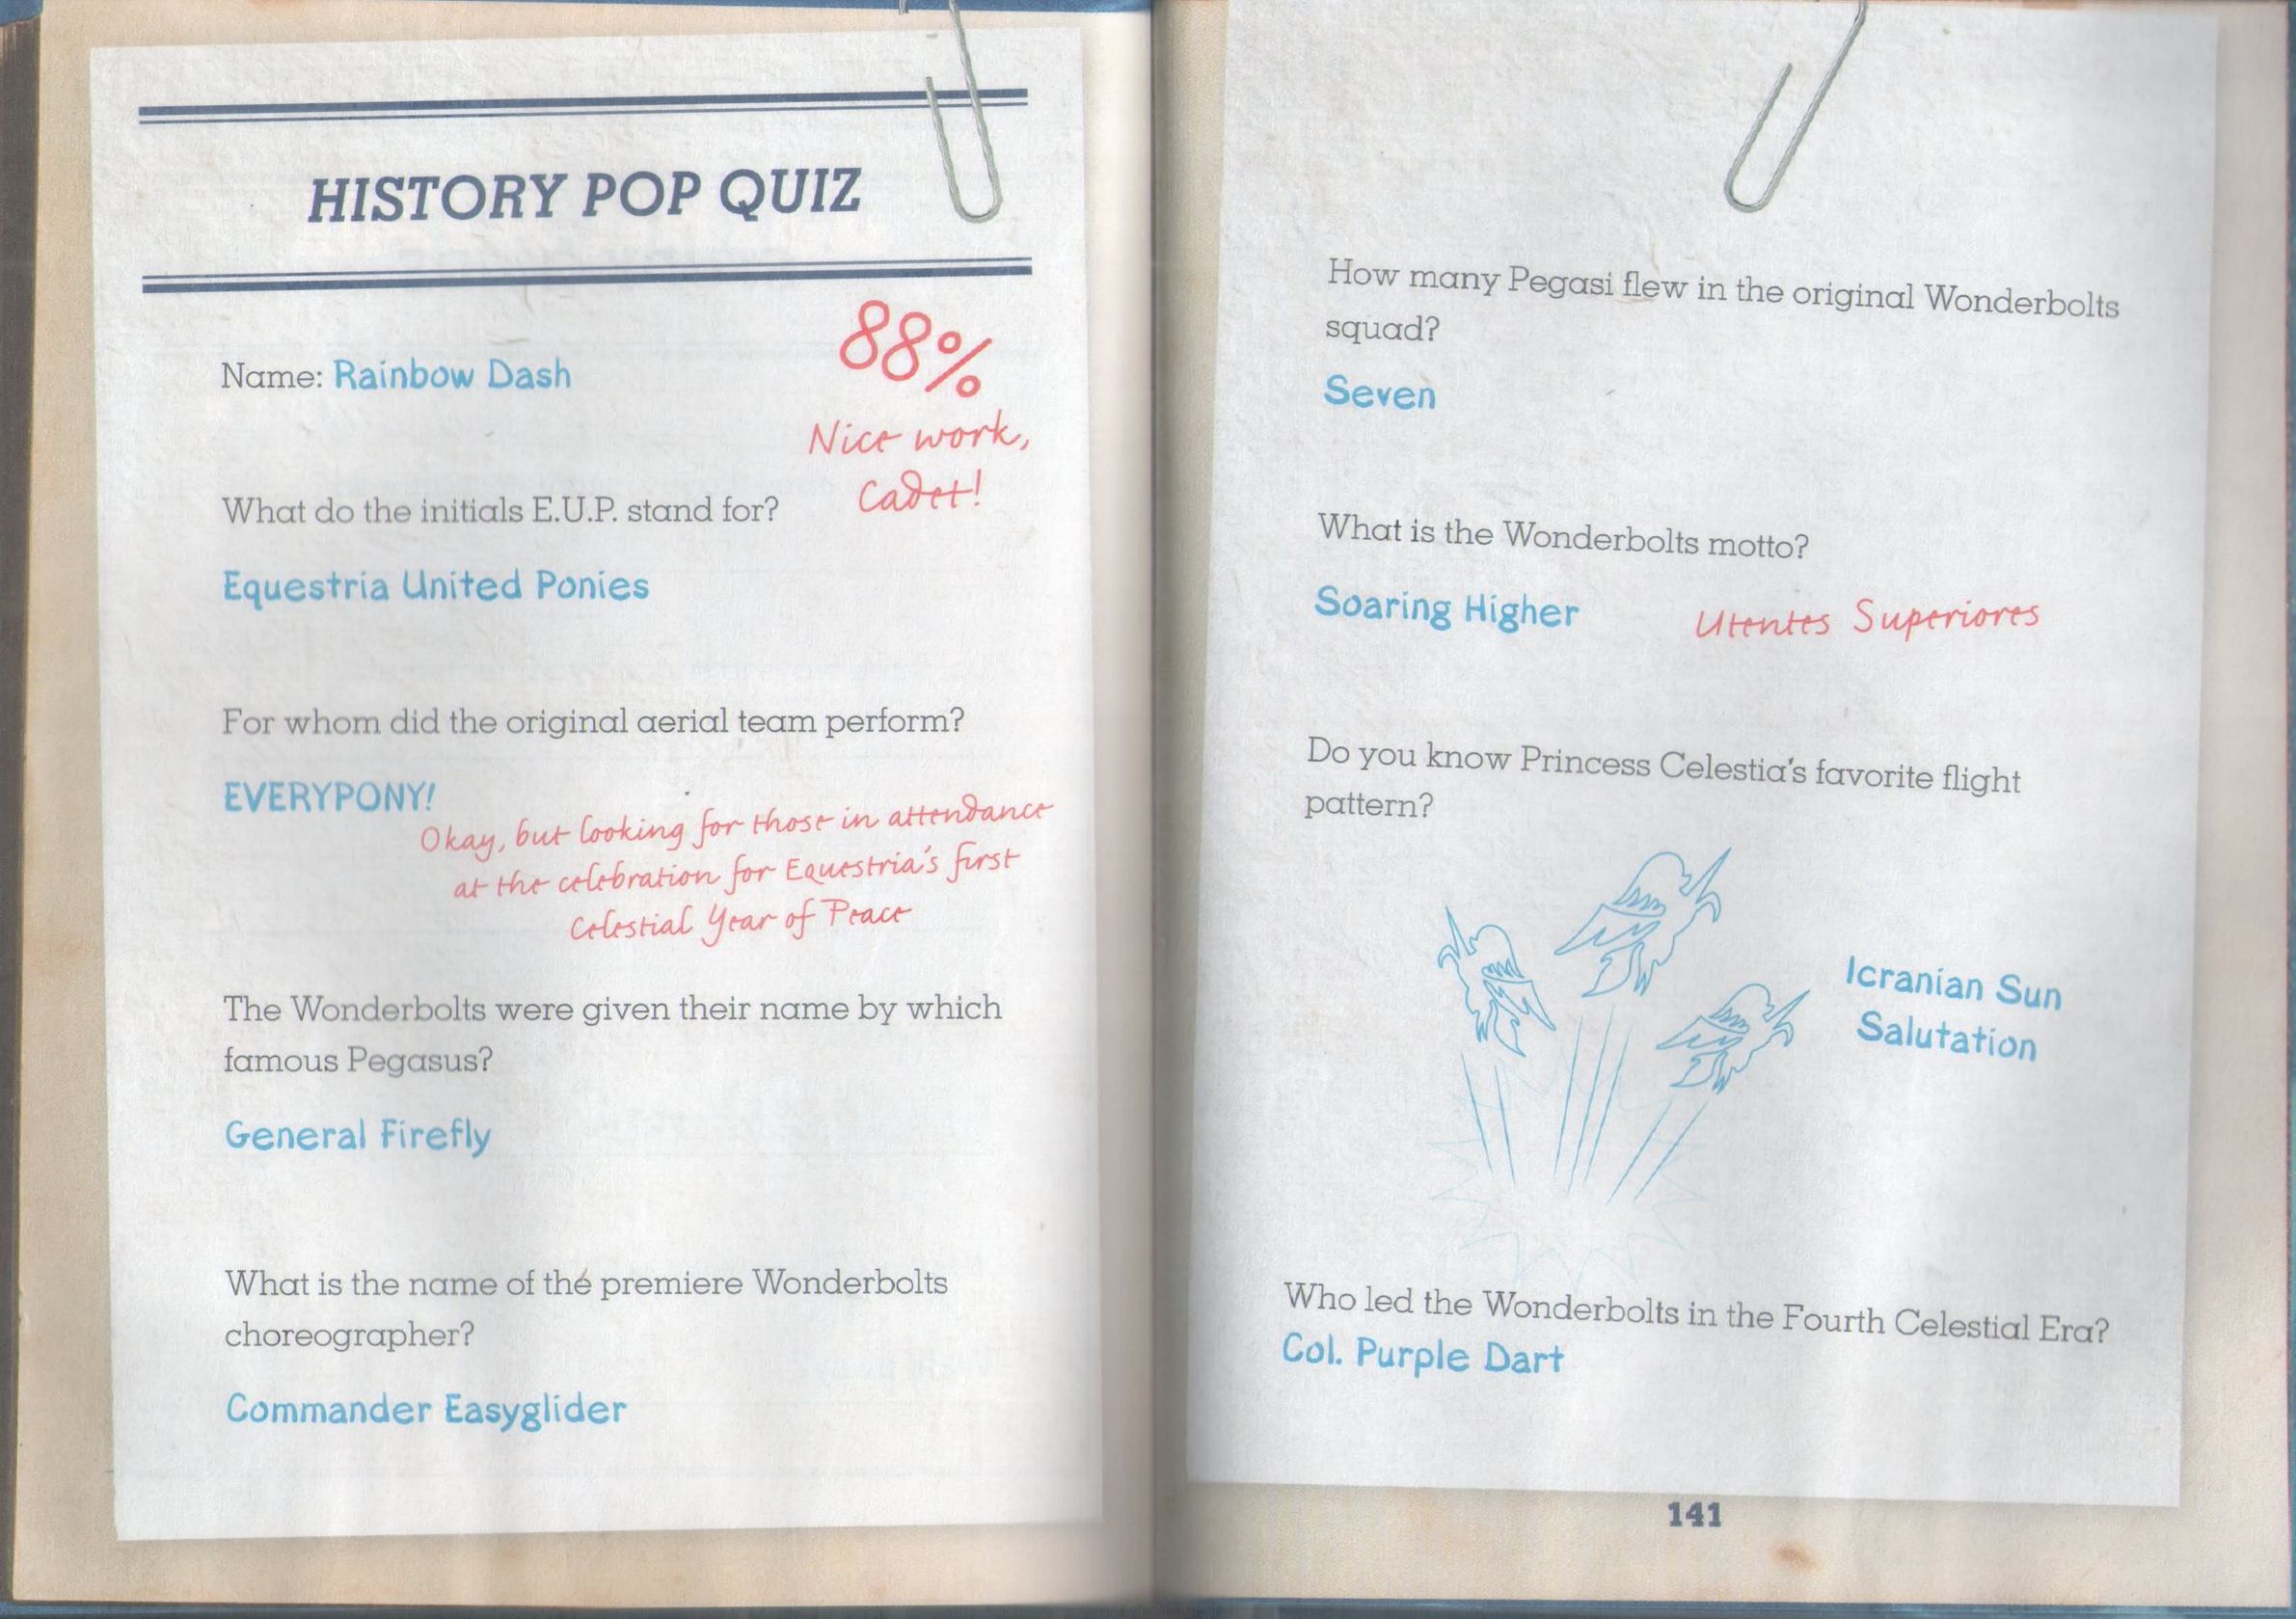 HISTORY POP QUIZ
Name: Rainbow Dash
88%
Nice work,
Cadet!
What do the initials E.U.P. stand for?
Equestria United Ponies
For whom did the original aerial team perform?
EVERYPONY!
Okay, but looking for those in attendance
at the celebration for Equestria's first
Celestial Year of Peace
The Wonderbolts were given their name by which
famous Pegasus?
General Firefly
What is the name of the premiere Wonderbolts
choreographer?
Commander Easyglider
How many Pegasi flew in the original Wonderbolts
squad?
Seven
What is the Wonderbolts motto?
Soaring Higher
Utentes Superiores
Do you know Princess Celestia's favorite flight
pattern?
Icranian Sun
Salutation
Who led the Wonderbolts in the Fourth Celestial Era?
Col. Purple Dart
141